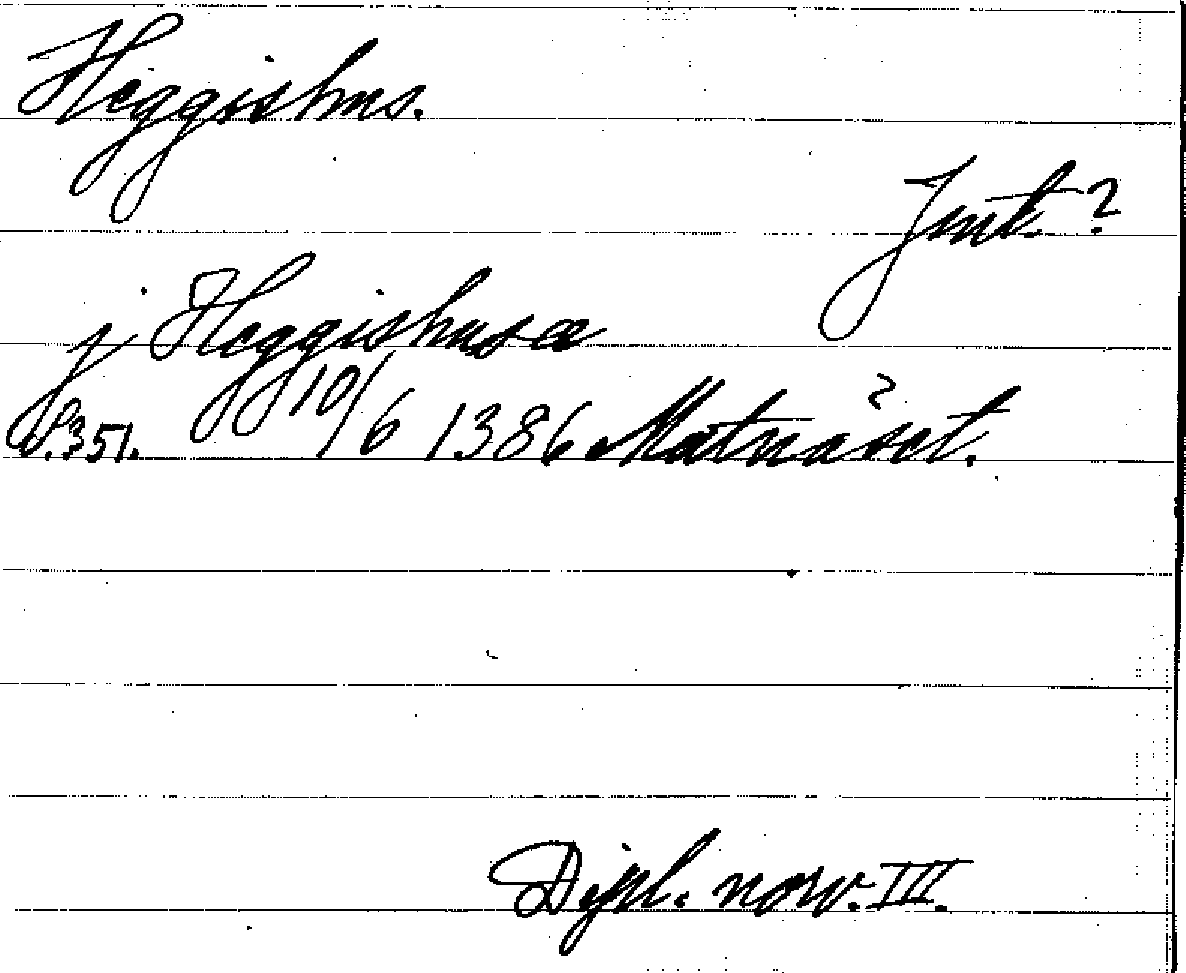 Heggishus.
Jmt. ?
j Heggishusæ
S. 351. 10/6 1386 Matnäset. ?
Dipl. norv. III.